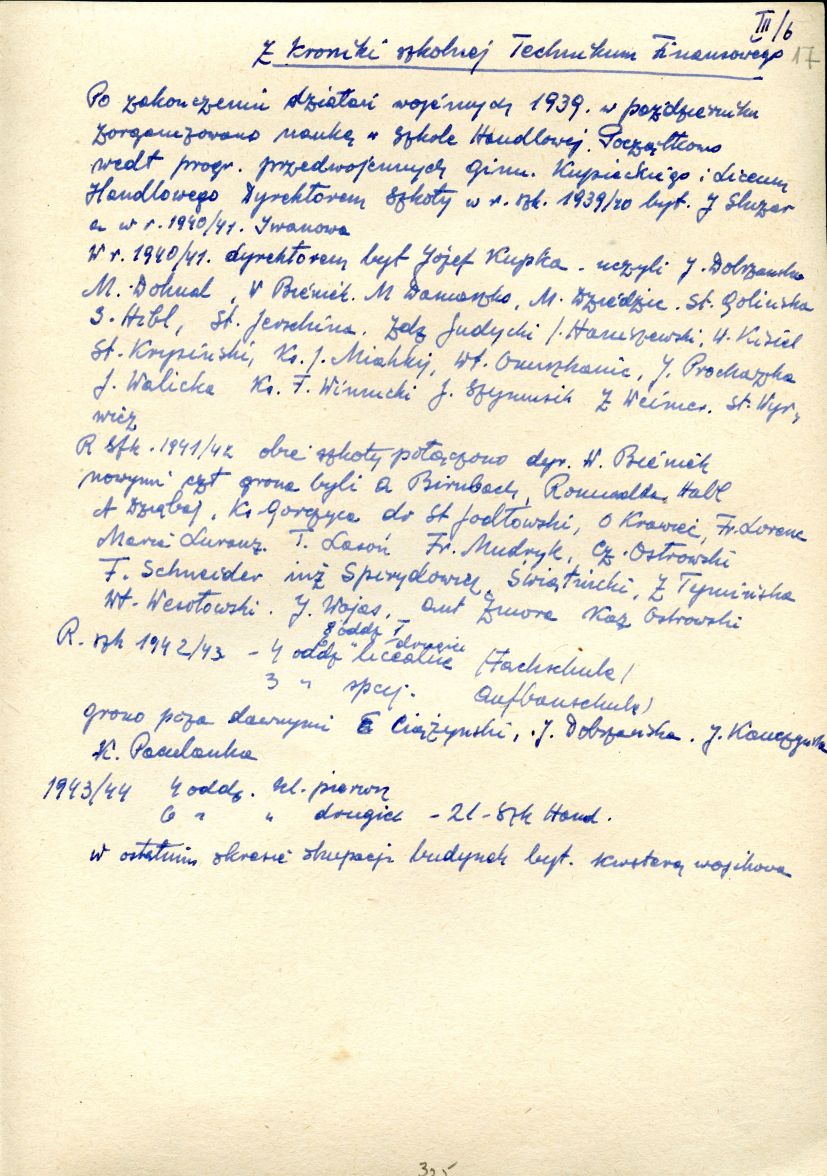 III/6
17
Z kroniki szkolnej Technikum Finansowego
Po zakończeniu działań wojennych 1939. w październiku
zorganizowano naukę w Szkole Handlowej. Początkowo
wedł progr. przedwojennych Gimn. Kupieckiego i Liceum
Handlowego Dyrektorem szkoły w r. szk. 1939/40 był. J Sluzar
a w r. 1940/41. Iwanowa
W r. 1940/41. dyrektorem był Józef Kupka. uczyli J. Dobrzańska
M. Dohnal, W Bieniek. M Damaszko, M. Dziedzic. St. Golińska
Hibl, St. Jerschina. Zdz Judycki, J. Haniszewski, W. Kisiel
St. Krypiński, Ks. J. Miahkij, Wł. Onuszkanic, J. Prochazka
J. Walicka Ks. F. Winnicki J. Szymusik Z Weimer. St. Wyr,
wicz
R szk. 1941/42 obie szkoły połączono dyr. W. Bieniek
nowymi czł grona byli A Birnbach, Romualda Habl
A Dziąbaj, Ks Gorczyca dr St Jodłowski, O Krawiec, Fr. Lorenc
Maria Luranz. T. Lasoń Fr. Mudryk, Cz. Ostrowski
F. Schneider inż Spirydowicz, Świątnicki, Z Tymińska
Wł. Wesołowski. J. Wojas, ant Zmora Kaz Ostrowski
8 oddz I
R. szk 1942/43 - 4 oddz " drugie
liceałne (Fachschule)
3 " spcj. Aufbauschule)
grono poza dawnymi E Ciążyński, J. Dobrzańska. J. Kanczyńska
K. Pacelanka
1943/44 4 oddz. kl. pierwsz
6 " " drugich - 2l - szk Hand.
w ostatnim okresie okupacji budynek był. kwaterą wojskową
325